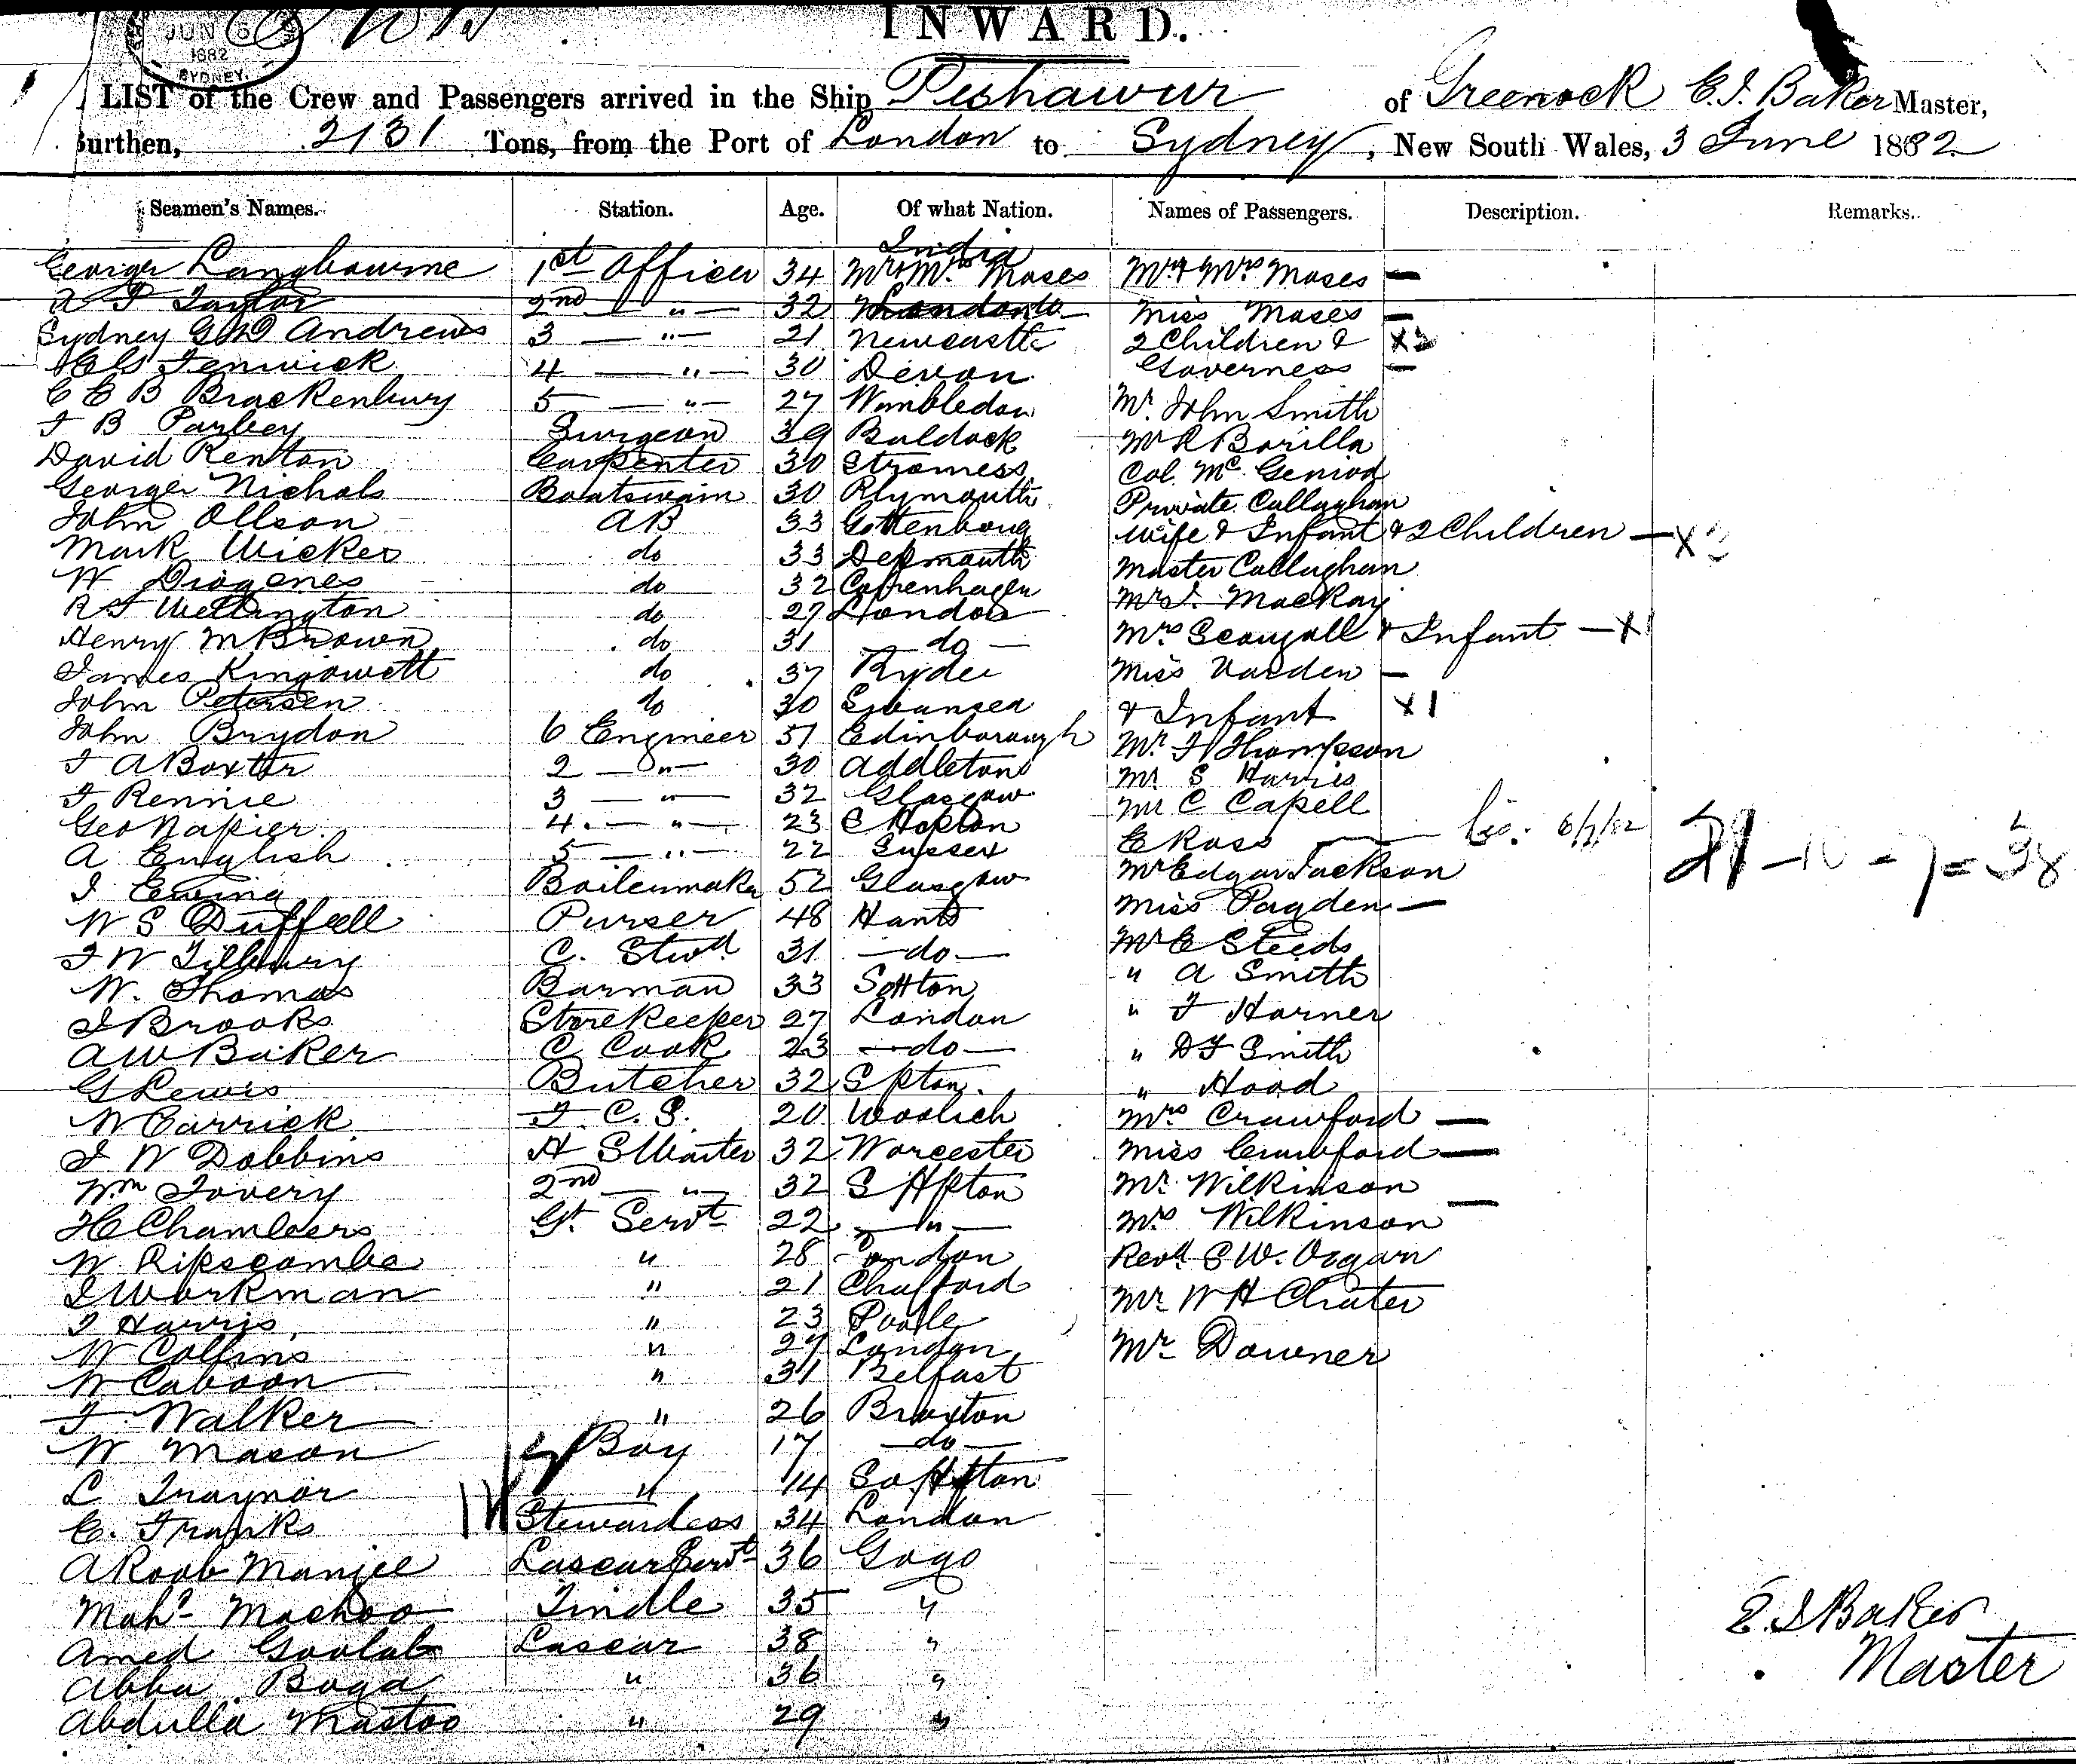 JUN 6
1882
SYDNEY
INWARD.
LIST of the Crew and Passengers arrived in the Ship Peshawur of Greenock E.J. Baker Master,
Burthen, 2131 Tons, from the Port of London to Sydney, New South Wales, 3 June 1882
Seamen's Names. Station. Age. Of what Nation. Names of Passengers. Description. Remarks.
India
George Langbourne 1st Officer 34 Mr & Mrs Moses Mr & Mrs Moses —
A P Taylor 2nd — " — 32 London Miss Moses —
Sydney G Andrews 3 — " — 21 Newcastle 2 Children & X3
Fenwick 4 — " — 30 Devon Governess —
C E B Brackenbury 5 — " — 27 Wimbledon Mr. John Smith
F B Parbey Surgeon 39 Baldock Mr R Borilla
David Renton Carpenter 30 Stromess Col. Mc
George Nichols Boatswain 30 Plymouth Private Callaghan
John Ollson AB 33 Gottenboug Wife & Infant & 2 Children —X3
Mark Wicker do 33 Master Callaghan
W Diogenes do 32 Copenhagen Mrs. MacKay
R J Wellington do 27 London Mrs Scougall & Infant —X1
Henry M Brown do 31 — do — Miss Varden —
James Kingowett do 37 Ryde & Infant X1
John Petersen do 30 Swansea
John Brydon C Engineer 51 Edinborough Mr. F Thompson
F A Boxter 2 — " — 30 Addleton Mr S Harris
F Rennie 3 — " — 32 Glasgow Mr C Capell
Geo Napier 4. — " — 23 E Ross —
A English 5 — " — 22 Sussex Mr Edgar Jackson
J Ewing Boilermaker 52 Glasgow Miss Pagden —
W S Duffell Purser 48 Hants Mr E Steeds
F W Tilbury C. Stwd 31 — do — " A Smith
W. Thomas Barman 33 Sotton " F Horner
J Brooks Storekeeper 27 London " D F Smith
A W Baker C Cook 23 — do — " Hood
G Lewis Butcher 32 S pton. Mrs Crawford —
W Carrick F. C. S. 20 Woolich Miss Crawford —
J W Dobbins H S Waiter 32 Worcester Mr Wilkinson
Wm Tovery 2nd — " — 32 S Hpton Mrs Wilkinson —
H Chambers Gt. Servt 22 — " — Revd. S W.
W Ripscombe " 28 London Mr W H Chater
J Workman " 21 Chafford Mr Downer
J Harris " 23 Poole
W Collins " 27 London
W Caboon " 31 Belfast
F Walker " 26 Braxton
W Mason Boy 17 — do —
L Traynor " 14 So Hton
E. Franks Stewardess 34 London
A Roob Manjee Lascar Servt 36 Gogo
Mahd. Machoo Tindle 35 "
Amed Goolab Lascar 38 "
Abba Boga " 36 "
Abdulla Mastoo " 29 "
E. J Baker
Master